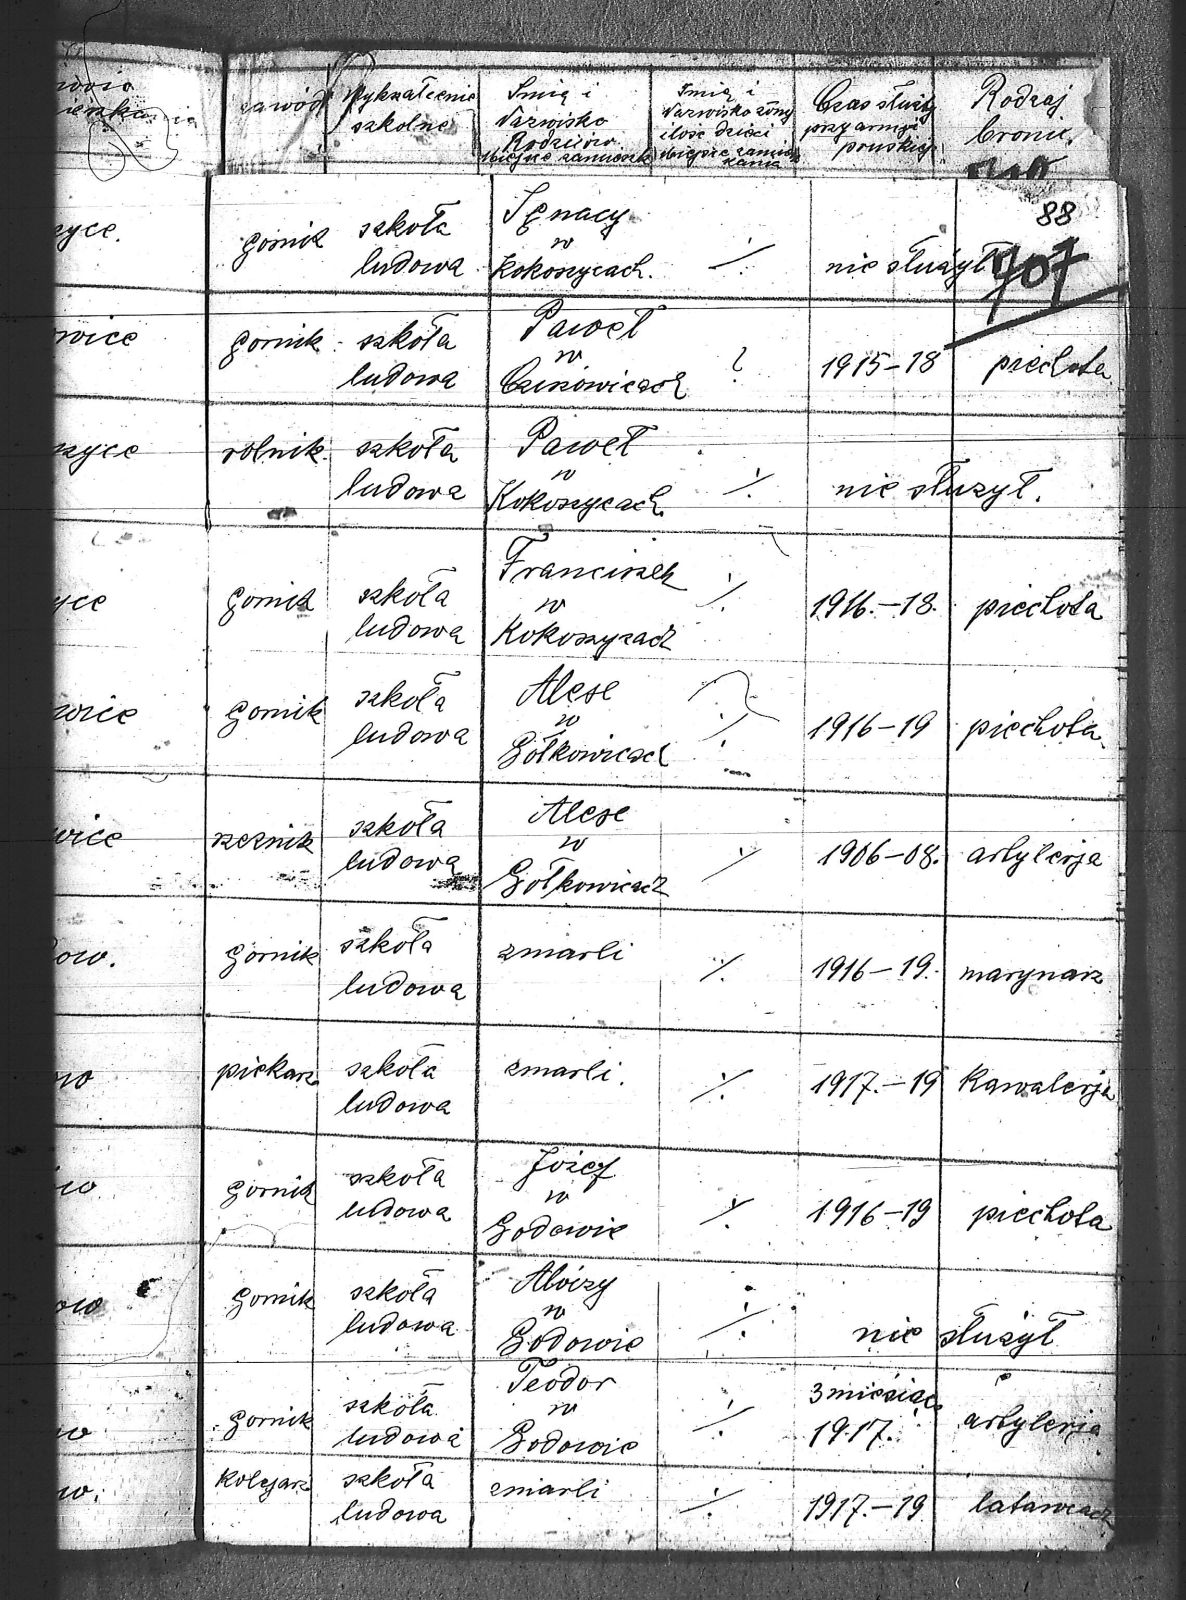 zawód
Wykształcenie
szkolne
Imię i
Nazwisko
Rodziców
Miejsce zamieszk
Imię i
Nazwisko żony
ilość dzieci
Miejsce zamiesz
kania
Czas służby
przy armji
pruskiej
Rodzaj
broni.
88
707
zyce.
gornik
szkoła
ludowa
Ignacy
w
Kokoszycach.
./.
nie służył
wice
gornik
szkoła
ludowa
Paweł
w
?
1915-18
piechota
zyce
rolnik.
szkoła
ludowa
Paweł
w
Kokoszycach.
./.
nie służył.
yce
gornik
szkoła
ludowa
Franciszek
w
Kokoszycach
./.
1916.-18.
piechota
wice
gornik
szkoła
ludowa
Alese
w
Gołkowicach
./.
1916-19
piechota.
wice
rzeznik
szkoła
ludowa
Alese
w
Gołkowicach
./.
1906-08.
artylerja
ow.
gornik
szkoła
ludowa
zmarli
./.
1916-19.
marynarz
wo
piekarz
szkoła
ludowa
zmarli.
./.
1917.-19
Kawalerja
wo
gornik
szkoła
ludowa
Józef
w
Godowie
./.
1916-19
piechota
ow
gornik
szkoła
ludowa
Aloizy
w
Godowie
./.
nie służył
w
gornik
szkoła
ludowa
Teodor
w
Godowie
./.
3 miesiące
1917.
artylerja
w.
Kolejarz
szkoła
ludowa
zmarli
./.
1917.-19
latawcach